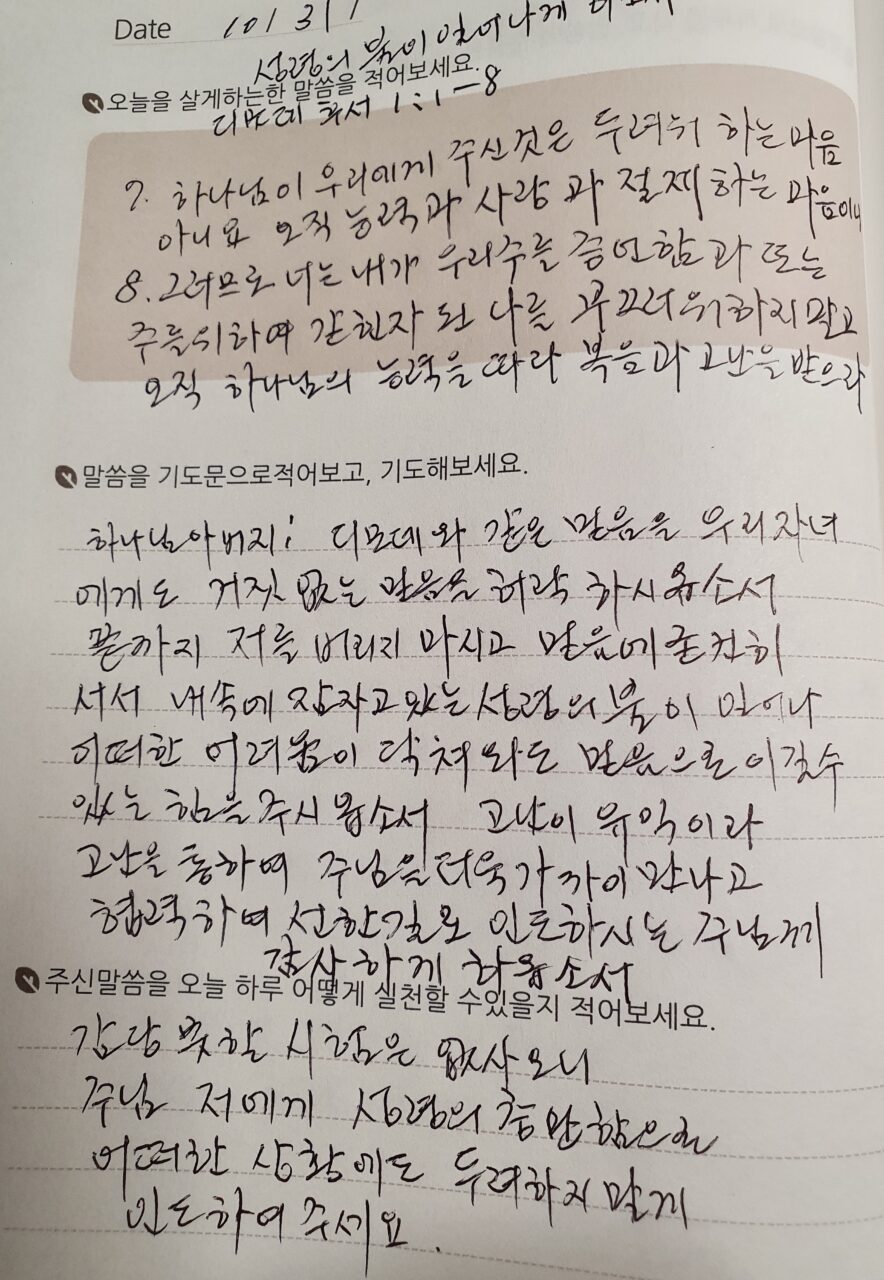 Date 10/31/
성령의 불이 일어나게 하소서
오늘을 살게하는한 말씀을 적어보세요.
디모데 후서 1:1-8
7. 하나님이 우리에게 주신것은 두려워 하는 마음
아니요 오직 능력과 사랑과 절제하는 마음이니
8. 그러므로 너는 내가 우리주를 증언함과 또는
주를위하여 갇힌자 된 나를 부끄러워하지말고
오직 하나님의 능력을 따라 복음과 고난을 받으라
말씀을 기도문으로적어보고, 기도해보세요.
하나님아버지! 디모데와 같은 믿음을 우리자녀
에게도 거짓없는 믿음을 허락 하시옵소서
끝까지 저를 버리지 마시고 믿음에 굳건히
서서 내속에 잠자고 있는 성령의 불이 일어나
어떠한 어려움이 닥쳐와도 믿음으로 이길수
있는 힘을 주시옵소서 고난이 유익이라
고난을 통하여 주님을 더욱 가까이 만나고
협력하여 선한길로 인도하시는 주님께
감사하게 하옵소서
주신말씀을 오늘 하루 어떻게 실천할 수있을지 적어보세요.
감당 못할 시험은 없사오니
주님 저에게 성령의 충만함으로
어떠한 상황에도 두려하지 말게
인도하여 주세요.